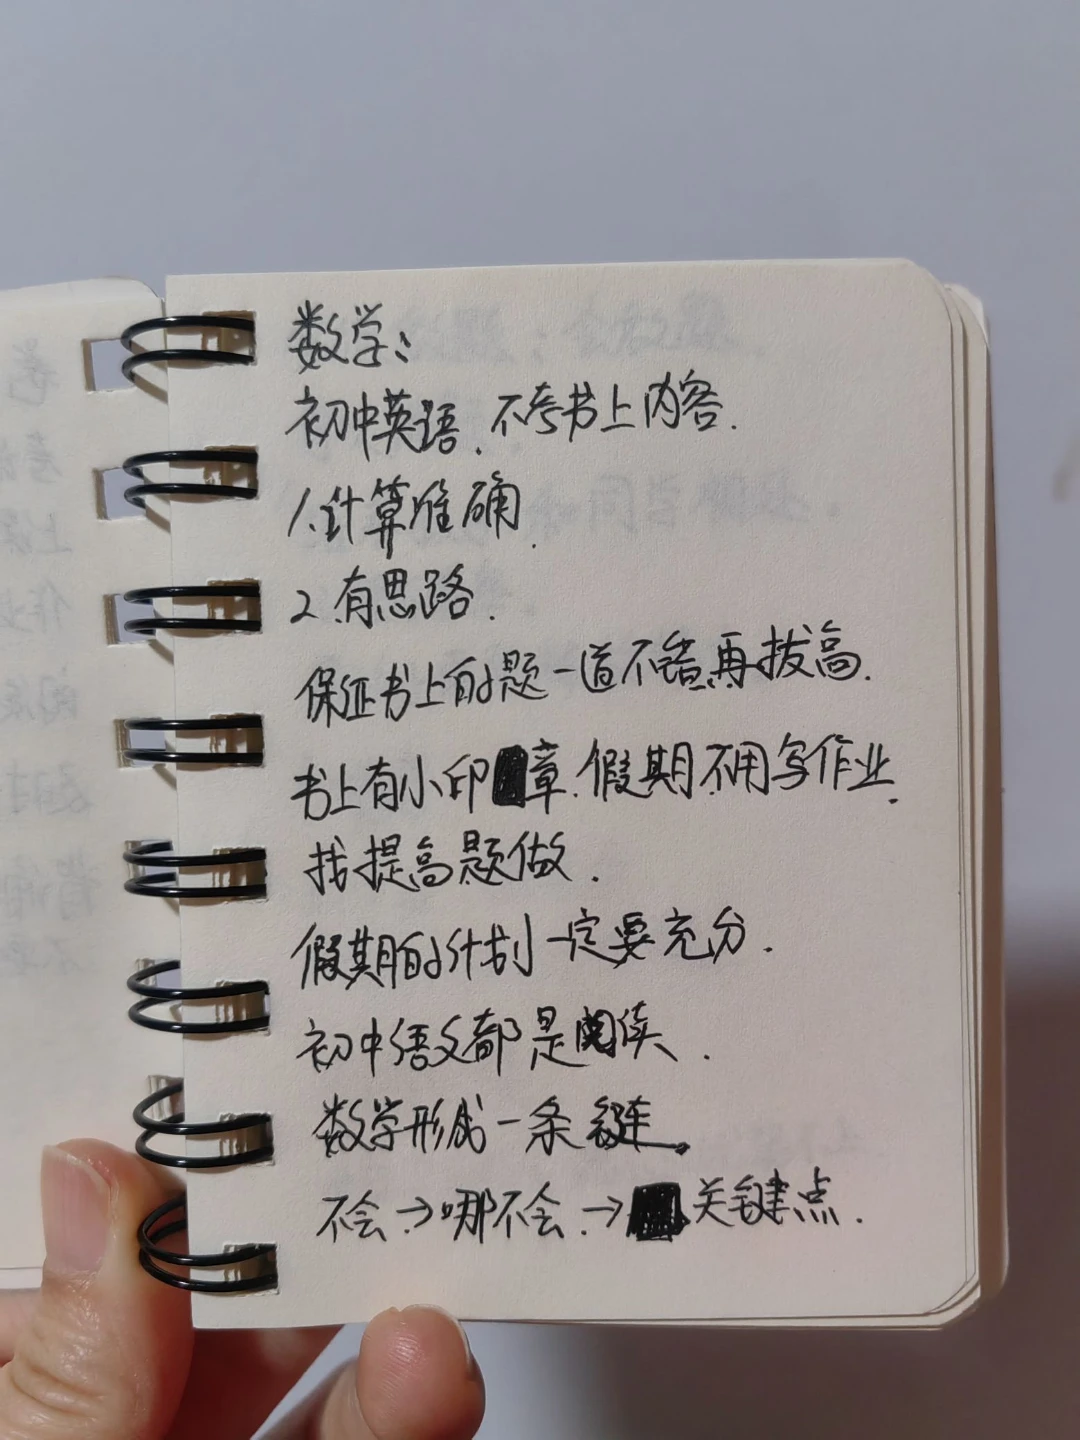 数学:
初中英语.不考书上内容.
1.计算准确.
2.有思路.
保证书上的题一道不错,再拔高.
书上有小印章.假期不用写作业.
找提高题做.
假期的计划一定要充分.
初中语文都是阅读.
数学形成一条链.
不会→哪不会.→关键点.